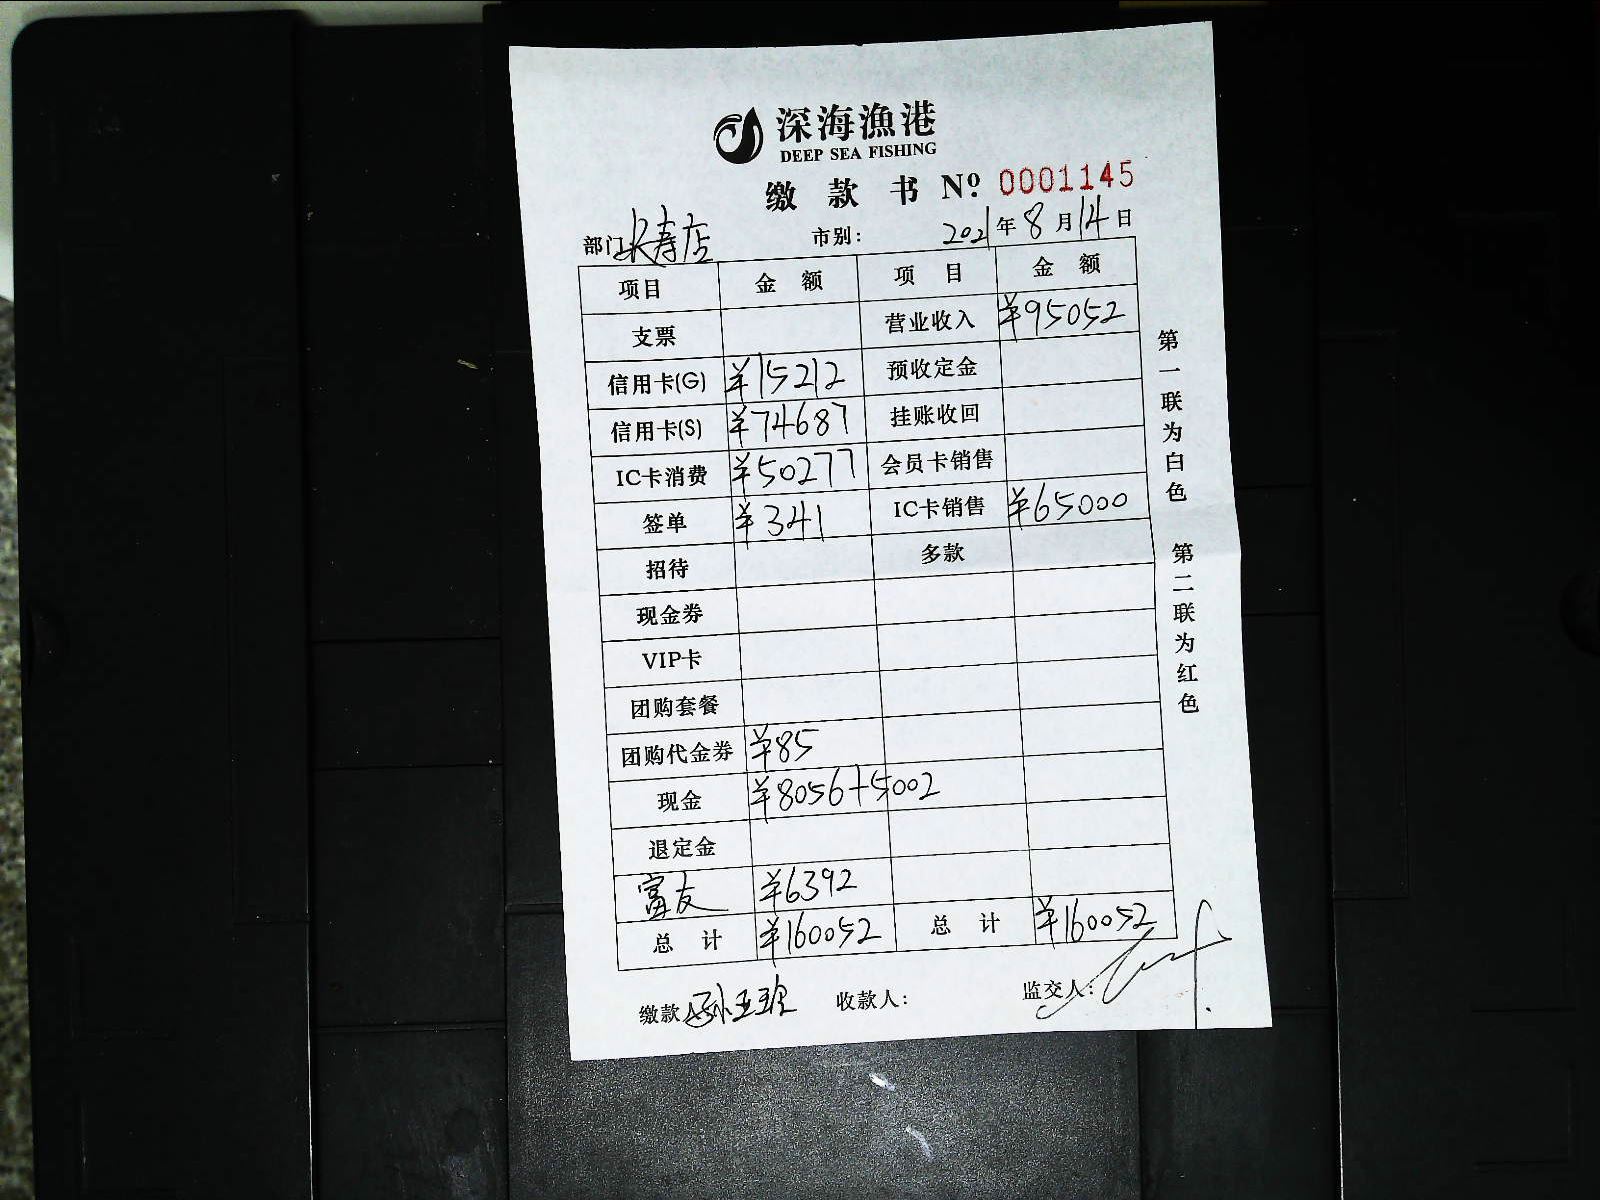 深海漁港
DEEP SEA FISHING
缴款书 Nº 0001145
部门 长寿店 市别： 2021年8月14日
项目 金额 项目 金额
支票 营业收入 ¥95052
信用卡(G) ¥15212 预收定金
信用卡(S) ¥74687 挂账收回
IC卡消费 ¥50277 会员卡销售
签单 ¥341 IC卡销售 ¥65000
招待 多款
现金券
VIP卡
团购套餐
团购代金券 ¥85
现金 ¥8056+5002
退定金
富友 ¥6392
总计 ¥160052 总计 ¥160052
缴款 收款人： 监交人：
第一联为白色 第二联为红色